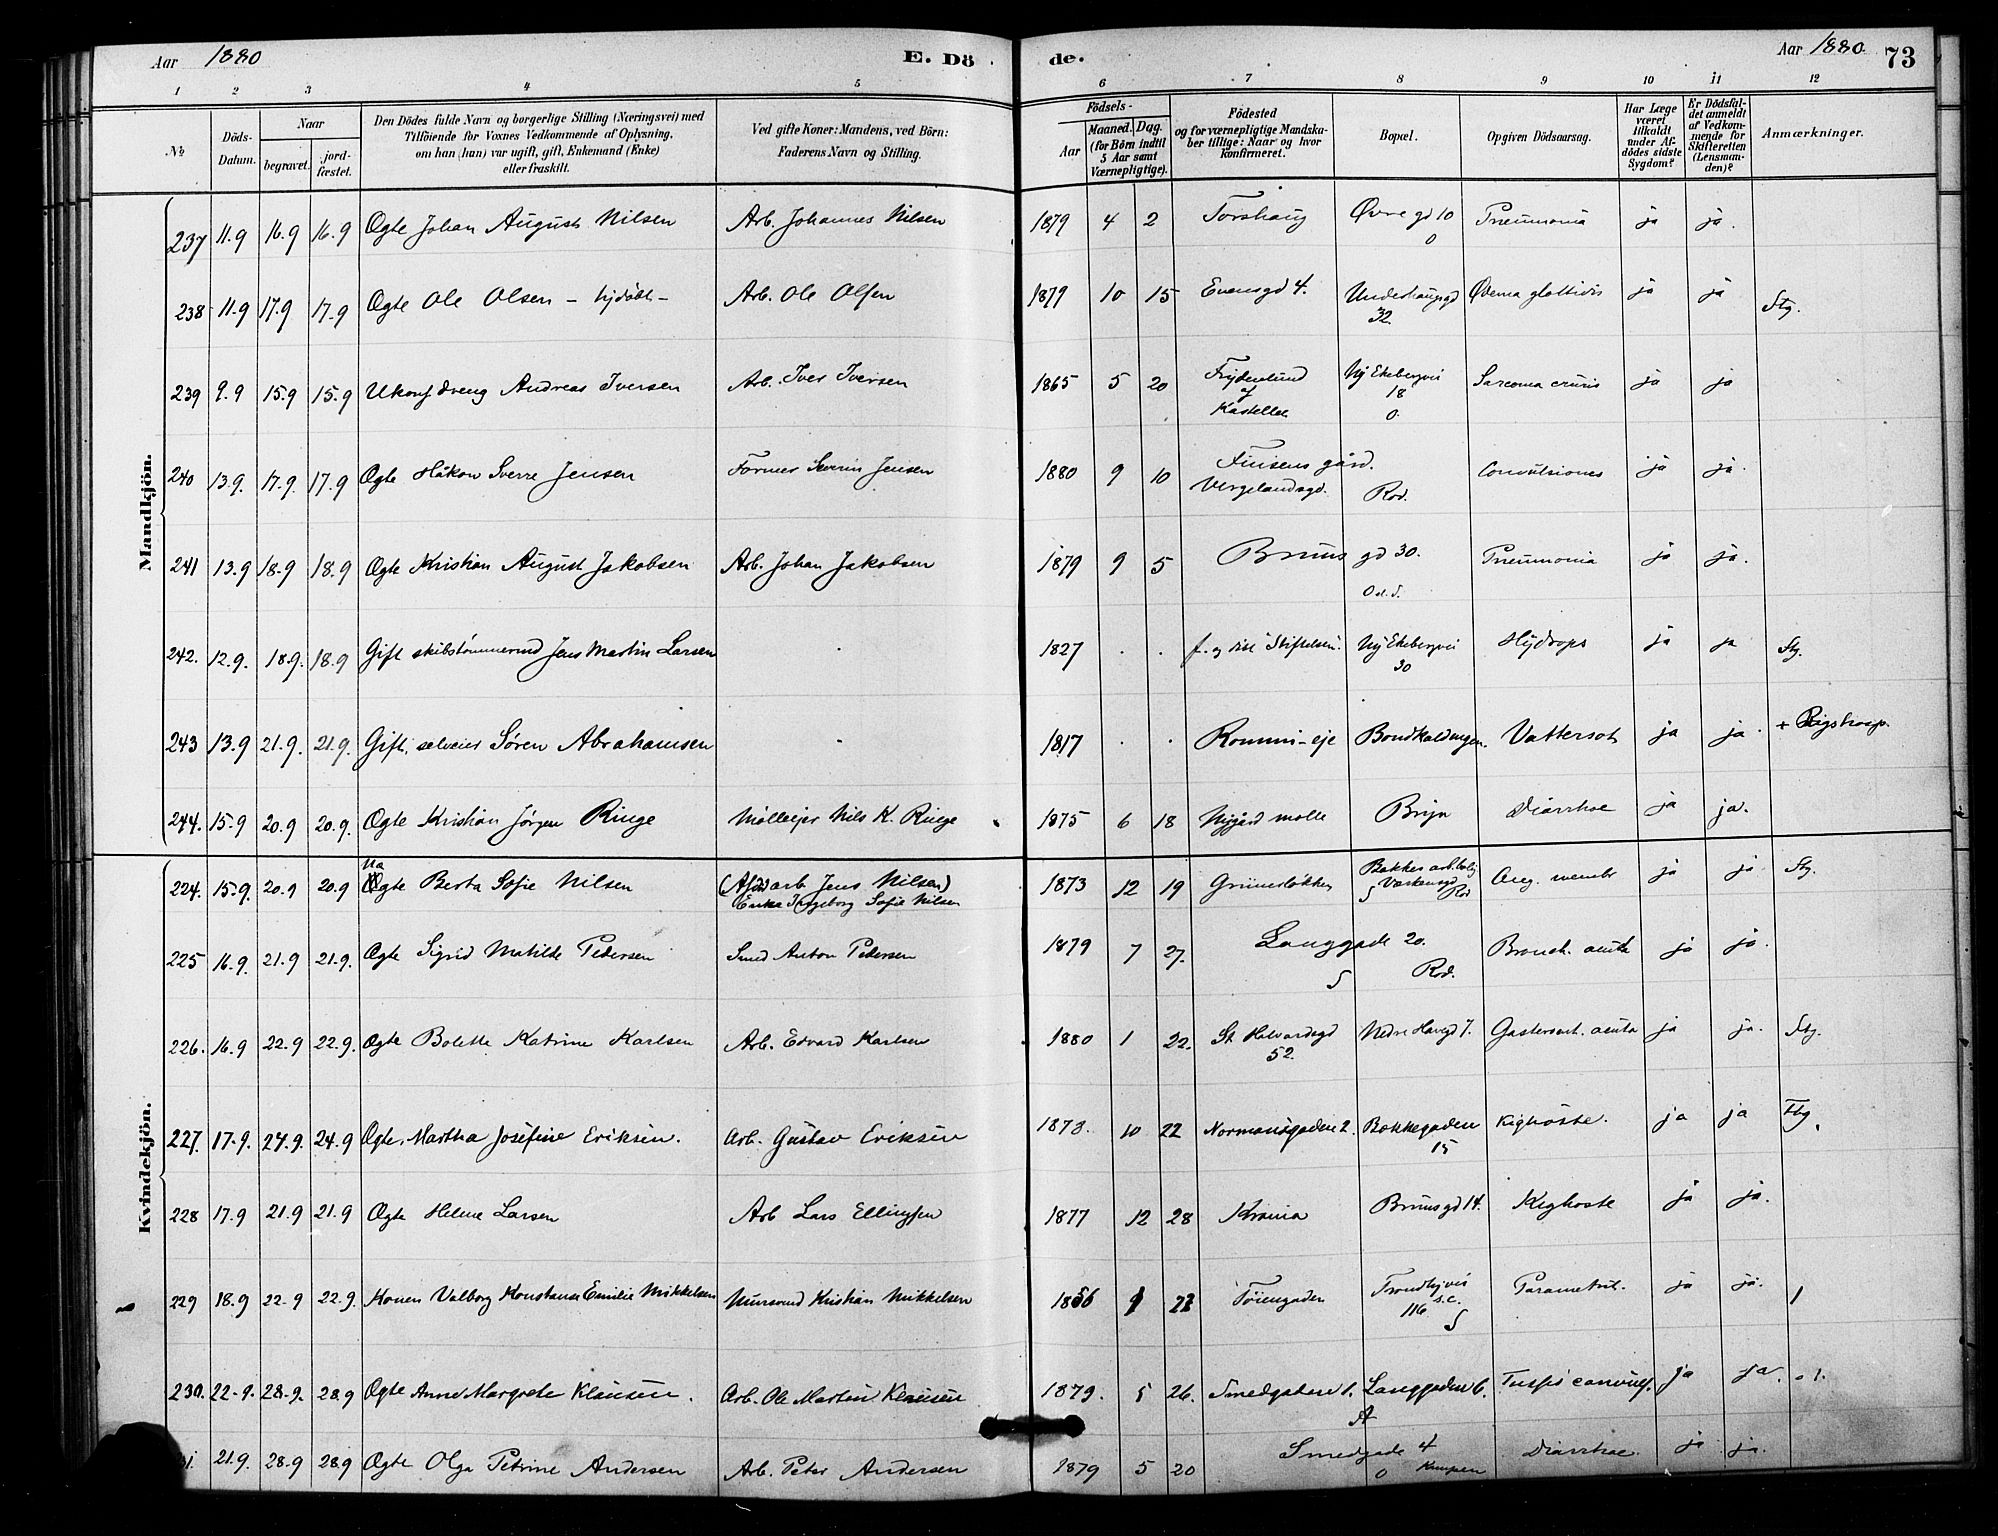 Aar 1880 E. Dö de. Aar 1880. 73
1 2 3 4 5 6 7 8 9 10 11 12
№ Döds-Datum. Naar begravet. jord-fæstet. Den Dödes fulde Navn og borgerlige Stilling (Næringsvei) med Tilföiende for Voxnes Vedkommende af Oplysning, om han (hun) var ugift, gift, Enkemand (Enke) eller fraskilt. Ved gifte Koner: Mandens, ved Börn: Faderens Navn og Stilling. Födsels- Aar Maaned. Dag. (for Börn indtil 5 Aar samt Værnepligtige). Födested og for værnepligtige Mandskaber tillige: Naar og hvor konfirmeret. Bopæl. Opgiven Dödsaarsag. Har Læge været tilkaldt under Afdödes sidste Sygdom? Er Dödsfaldet anmeldt af Vedkommende for Skifteretten (Lensmanden)? Anmærkninger.
Mandkjön.
237 11.9 16.9 16.9 Ogte Johan August Nilsen Arb. Johannes Nilsen 1879 4 2 Torshaug Øvre gd 10 Pneumonia ja ja.
0
238 11.9 17.9 17.9 Ogte Ole Olsen Arb. Ole Olsen 1879 10 15 Evensgd 4. 32. Ødema glottidis ja ja Stg.
239 9.9 15.9 15.9 Ukonf. dreng Andreas Iversen Arb. Iver Iversen 1865 5 20 Frydenlund af Kastellet Ny Ekebergvei 18 0. Sarcoma cruris ja ja
240 13.9. 17.9. 17.9 Ogte Håkon Sverre Jensen Former Severin Jensen 1880 9 10 Finsens gård. Vergelandsgd. Rod. Convulsiones ja ja.
241 13.9 18.9 18.9 Ogte Kristian August Jakobsen Arb. Johan Jakobsen 1879 9 5 Bruns gd 30. Pneumonia ja ja.
242. 12.9. 18.9. 18.9 Gift skibstømmermd Jens Martin Larsen 1827 Stiftelsen. Ny Ekebergvei 30 Hydrops ja ja Stg.
243 13.9 21.9. 21.9. Gift, selveier Søren Abrahamsen 1817 Rommi-eje Vattersot ja ja + Rigshosp.
244. 15.9 20.9 20.9. Ogte Kristian Jørgen Ringe Mølleejer Nils K. Ringe 1875 6 18 Nygård mølle Bryn Diarrhoe ja ja.
Kvindekjön.
224. 15.9. 20.9 20.9 Ua Ogte Berta Sofie Nilsen (Afdø arb Jens Nilsen) 1873 12 19 Grünerløkken Bakkes arb.bolig ja ja. Stg.
Enke Ingeborg Sofie Nilsen
225 16.9. 21.9 21.9. Ogte Sigrid Matilde Petersen Smed Anton Petersen 1879 7 27. Langgade 20. Rod. Bronch. acuta ja ja.
226. 16.9 22.9 22.9. Ogte Bolette Katrine Karlsen Arb. Edvard Karlsen 1880 1 22. St Halvardsgd 52. Nedre Havegd 7. acuta ja ja. Stg.
227. 17.9. 24.9. 24.9 Ogte. Martha Josefine Eriksen. Arb. Gustav Eriksen 1873. 10 22 Normansgaden 2. Bakkegaden 15 Kighoste. ja ja Fbg.
228 17.9 21.9 21.9 Ogte Helene Larsen Arb Lars Ellingsen 1877 12 28 Krania Brunsgd 14. Kighoste ja ja.
229 18.9 22.9 22.9. Konen Valborg Konstanse Emilie Mikkelsen Mursvend Kristian Mikkelsen 1856 Tøiengaden Trondhjvei 116 s.c. Parametrit. ja ja.
230. 22.9. 28.9. 28.9 Ogte Anne Margrete Klausen. Arb. Ole Martin Klausen 1879. 5 26. Smedgaden 1. Langgaden 6. Tussis convuls. ja ja.
21.9. 28.9 28.9 Ogte Olga Petrine Andersen Arb. Peter Andersen 1879 5 20 Smedgade 4 Kampen Diarrhoe. ja ja.